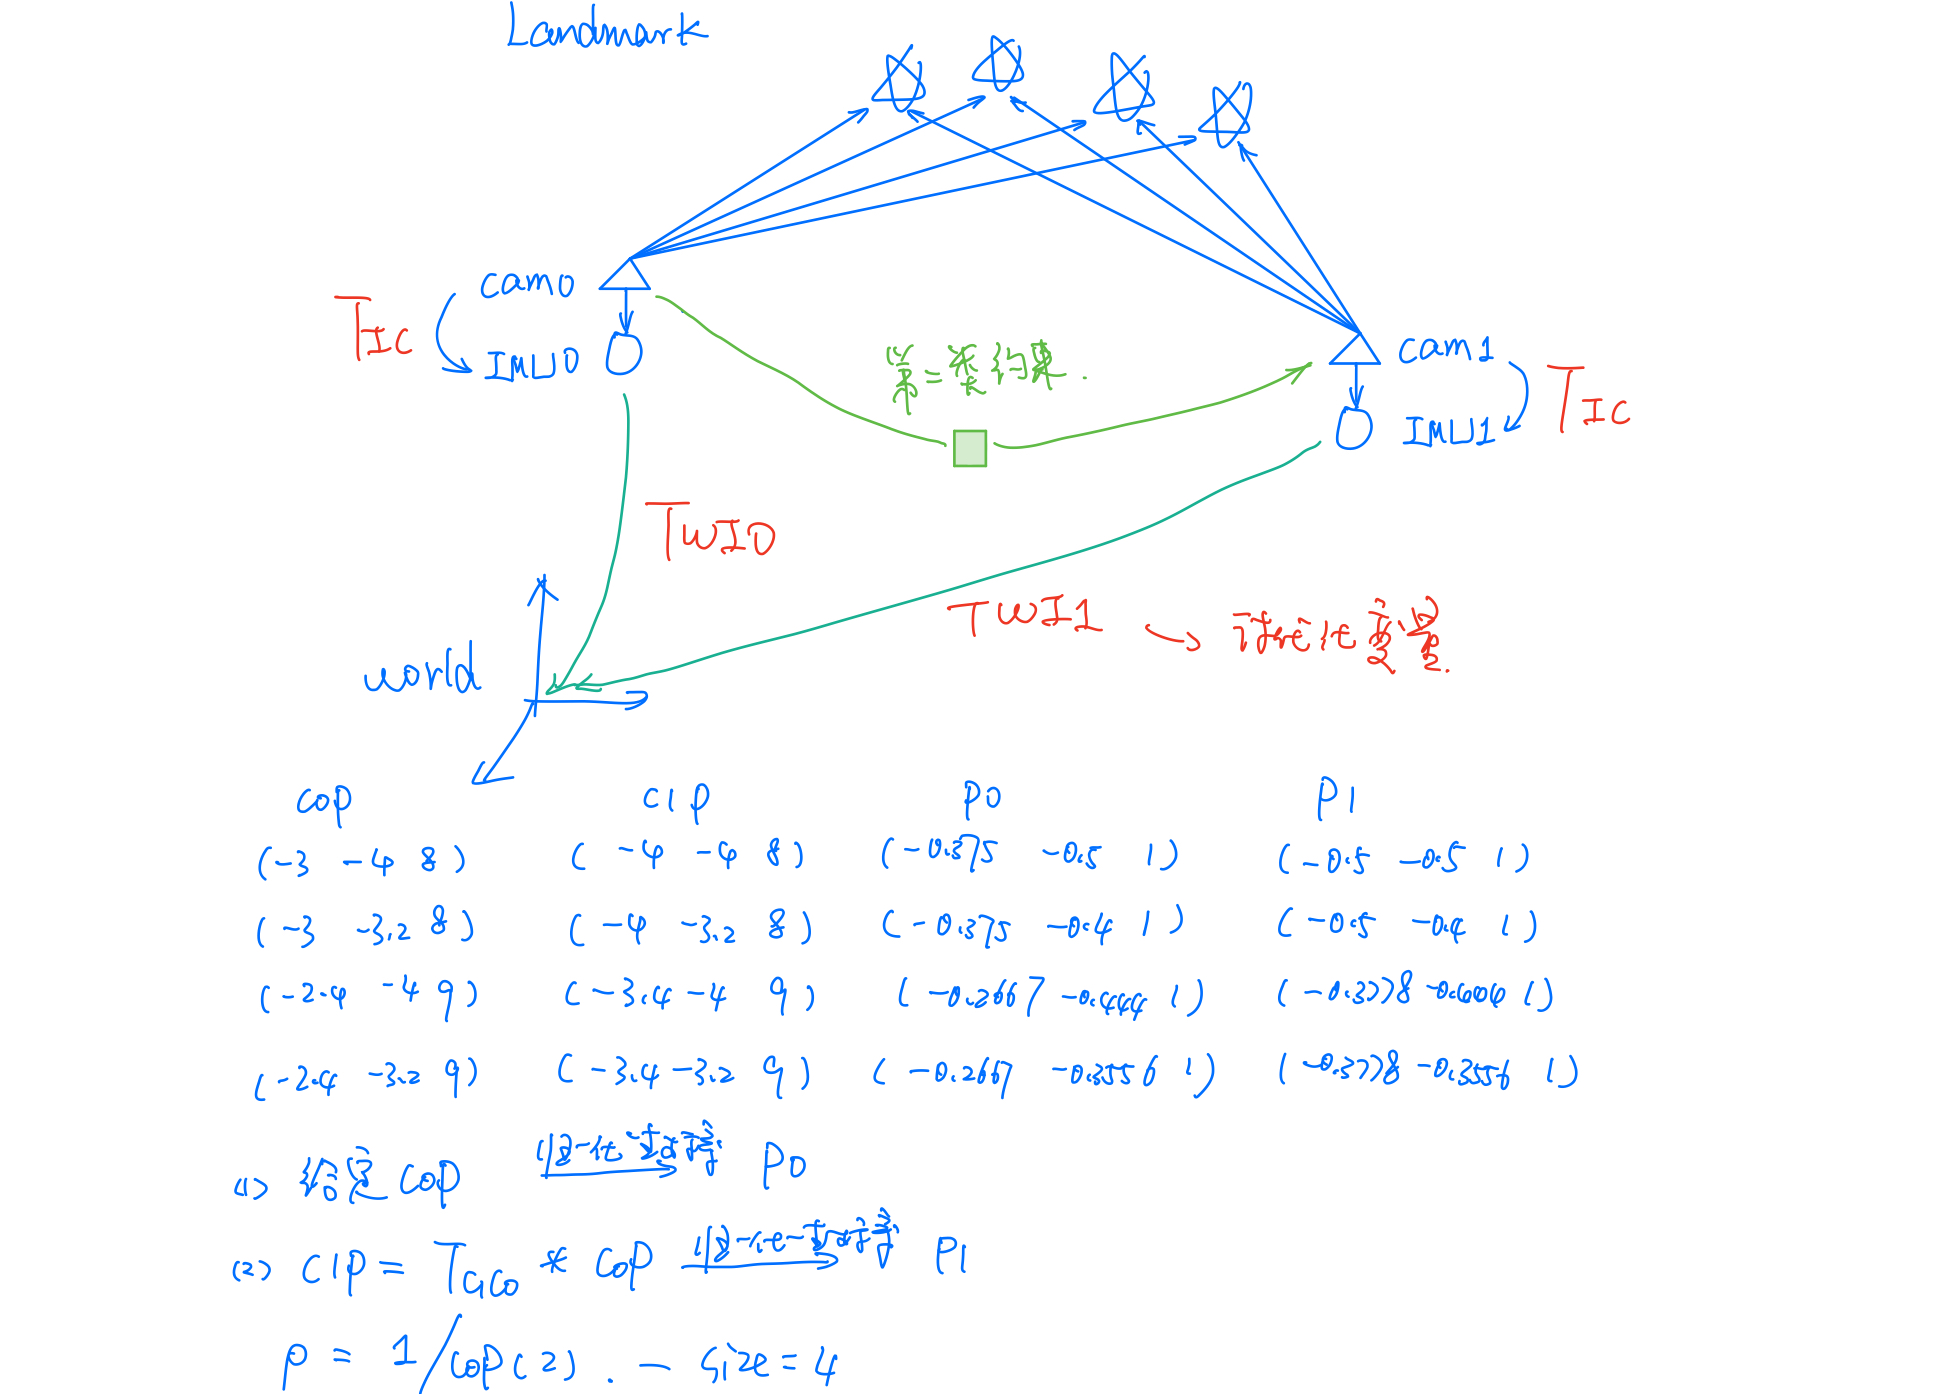 Landmark
cam0
TIC
IMU0
第二类约束.
cam1
TIC
IMU1
TWI0
TWI1
待优化变量.
world
c0p c1p p0 p1
(-3 -4 8) (-4 -4 8) (-0.375 -0.5 1) (-0.5 -0.5 1)
(-3 -3.2 8) (-4 -3.2 8) (-0.375 -0.4 1) (-0.5 -0.4 1)
(-2.4 -4 9) (-3.4 -4 9) (-0.2667 -0.444 1) (-0.3778 -0.444 1)
(-2.4 -3.2 9) (-3.4 -3.2 9) (-0.2667 -0.3556 1) (-0.3778 -0.3556 1)
(1) 给定 c0p 归一化 p0
(2) c1p = TC1C0 * c0p 归一化 p1
ρ = 1/c0p(2). — size=4